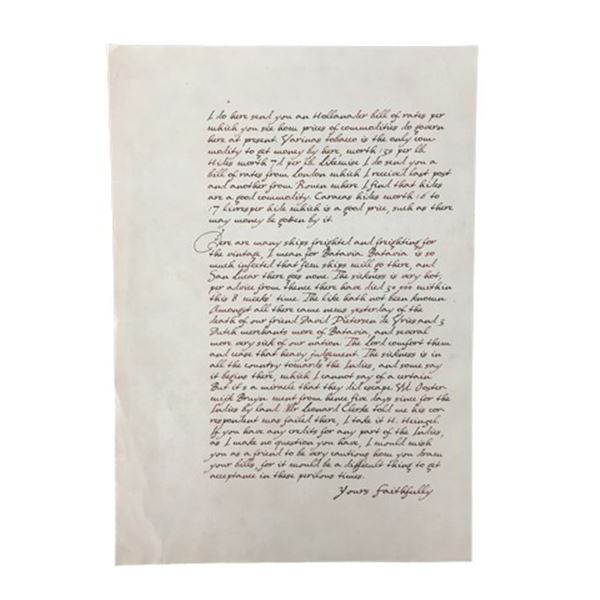 I do here send you an Hollander bill of rates per
which you see how prices of commodities do govern
here at present. Varinas tobacco is the only com-
modity to get money by here, worth 13s per lb.
Hides worth 7d per lb. Likewise I do send you a
bill of rates from London which I received last post
and another from Rouen where I find that hides
are a good commodity. Caracas hides worth 16 to
17 livres per hide which is a good price, such as there
may money be gotten by it.
Here are many ships freighted and freighting for
the vintage, I mean for Batavia. Batavia is so
much infected that few ships will go there, and
San Lucar there goes none. The sickness is very hot,
per advice from thence there have died 30 000 within
this 8 weeks' time. The like hath not been known.
Amongst all there came news yesterday of the
death of our friend David Pietersen de Vries and 3
Dutch merchants more of Batavia, and several
more very sick of our nation. The Lord comfort them
and cease that heavy judgement. The sickness is in
all the country towards the Indies, and some say
it begins there, which I cannot say of a certain.
But it's a miracle that they did escape. Wl. Ooster-
wijk Bruyn went from hence five days since for the
Indies by land. Mr Leonard Clerke told me his cor-
respondent was failed there, I take it H. Heingel.
If you have any credits for any part of the Indies,
as I make no question you have, I would wish
you as a friend to be very cautious how you draw
your bills, for it would be a difficult thing to get
acceptance in these perilous times.
Yours faithfully